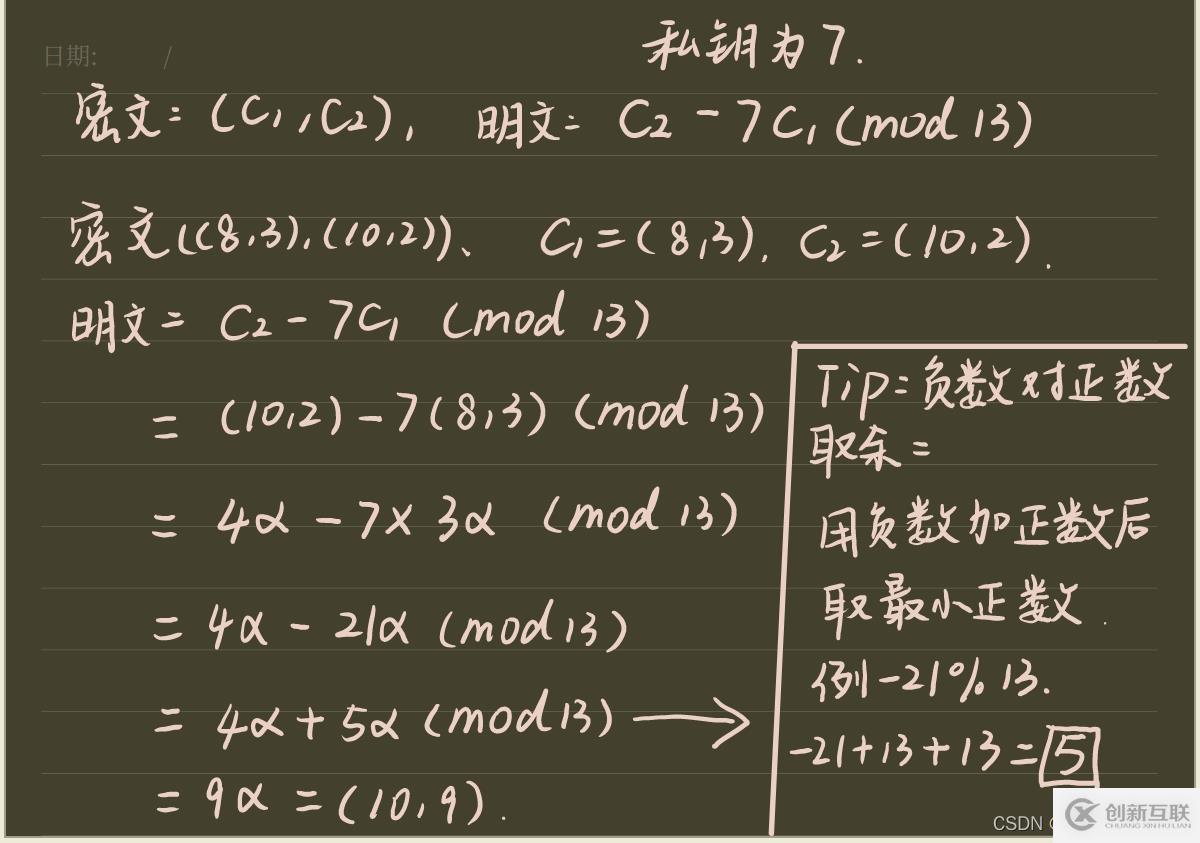 日期: /
私钥为7.
密文=(C₁,C₂), 明文= C₂-7C₁(mod 13)
密文((8,3),(10,2))、 C₁=(8,3), C₂=(10,2).
明文= C₂-7C₁ (mod 13)
= (10,2)-7(8,3) (mod 13)
= 4α-7×3α (mod 13)
= 4α-21α (mod 13)
= 4α+5α (mod 13) →
= 9α =(10,9).
Tip=负数对正数
取余=
用负数加正数后
取最小正数.
例-21%13.
-21+13+13=5
CSDN
创新互联
CHUANG XIN HU LIAN